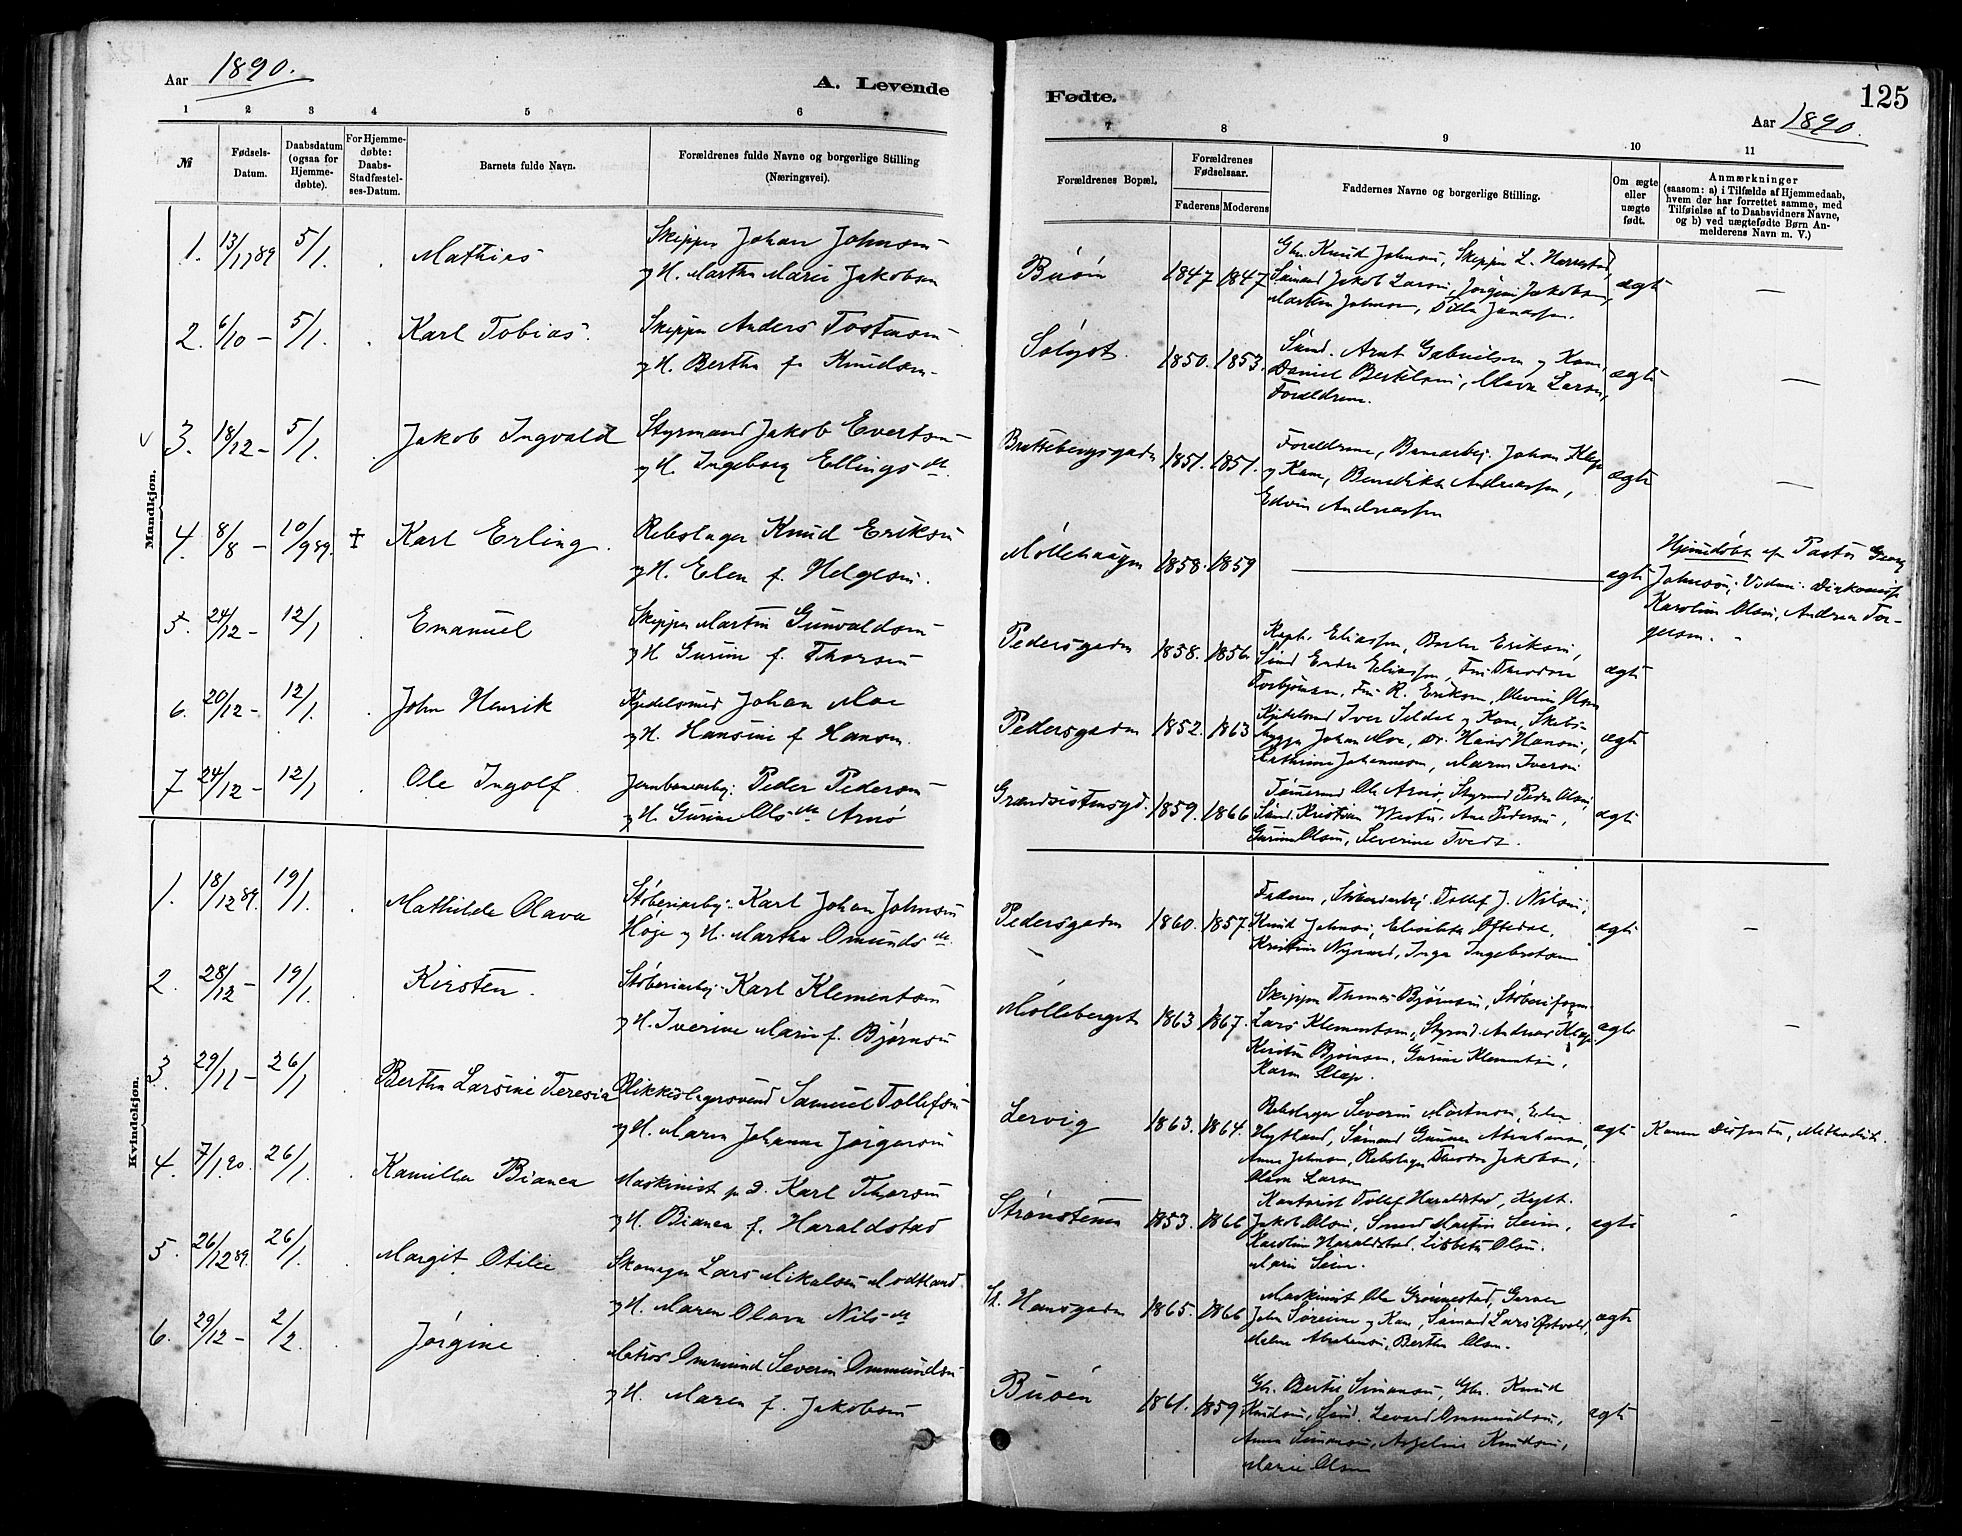 Aar 1890.
A. Levende
Fødte.
125
Aar 1890.
1 2 3 4 5 6 7 8 9 10 11
№
Fødsels-
Datum.
Daabsdatum
(ogsaa for
Hjemme-
døbte).
For Hjemme-
døbte:
Daabs-
Stadfæstel-
ses-Datum.
Barnets fulde Navn.
Forældrenes fulde Navne og borgerlige Stilling
(Næringsvei).
Forældrenes Bopæl.
Forældrenes
Fødselsaar.
Faderens Moderens
Faddernes Navne og borgerlige Stilling.
Om ægte
eller
uægte
født.
Anmærkninger
(saasom: a) i Tilfælde af Hjemmedaab,
hvem der har forrettet samme, med
Tilføielse af to Daabsvidners Navne,
og b) ved uægtefødte Børn An-
melderens Navn m. V.)
Mandkjøn.
1. 13/11 89 5/1. Mathias Skipper Johan Johnsen
og H. Martha Marie Jakobsen
Buøen 1847 1847 ægte —
Sømand Jakob Larsen, Jørgine Jakobsen,
2. 6/10 — 5/1. Karl Tobias. Skipper Anders Tostensen
og H. Bertha f. Knudsen
Sølyst. 1850. 1853. ægte —
Sømd. Arnt Gabrielsen og Kone,
Daniel Bertelsen, Olava Larsen,
Forældrene.
3. 18/12 — 5/1. Jakob Ingvald Styrmand Jakob Evertsen
og H. Ingeborg Ellingsdtr.
Brattebergsgaden 1851. 1851. ægte —
Forældrene, Banearbej. Johan Klep
og Kone, Benedikte Andreassen,
Edvin Andreassen
4. 8/8 — 10/9 89. † Karl Erling. Rebslager Knud Eriksen
og H. Elen f. Helgesen.
Møllehaugen 1858. 1859 — ægte
Hjemdøbt af Pastor Georg
Johnsen. Vidner: Diakonisse
Karoline Olsen, Andrea Tor-
gersen.
5. 24/12 — 12/1 Emanuel Skipper Martin Gunvaldsen
og H. Gurine f. Thorsen
Pedersgaden 1858. 1856. ægte
6. 20/12 — 12/1. John Henrik Kjedelsmed Johan Moe
og H. Hansine f. Hansen.
Pedersgaden 1852. 1863 ægte
Kjedelsmd Iver Seldal og Kone, Skibs-
bygger Johan Moe, Dr. Hans Hansen,
Kathrine Johannesen, Maren Iversen
7 24/12 — 12/1 Ole Ingolf. Jernbanearbej. Peder Pedersen
og H. Gurine Olsdtr Arnø
1859. 1866 ægte
Tømmermd Ole Arnø, Styrmd Peder Olsen,
Sømd. Kristian Westre, Ane Pedersen,
Gurine Olsen, Severine Tvedt.
Kvindekjøn.
1. 18/12 89. 19/1. Mathilde Olava Støberiarbej. Karl Johan Johnsen
Høje og H. Martha Omundsdtr.
Pedersgaden 1860. 1857. ægte —
Faderen, Støberiarbej. Tollef J. Nilsen,
Knud Johnsen, Elisabeth Oftedal,
Kristine Nygaard, Inga Ingebretsen
2. 28/12 — 19/1. Kirsten. Støberiarbej. Karl Klementsen
og H. Iverine Marie f. Bjørnsen
Mølleberget 1863 1867. ægte —
Skipper Thomas Bjørnsen, Støberiform.
Lars Klementsen, Styrmd. Andreas Klep,
Kirsten Bjørnsen, Gurine Klementsen,
Karen Klep.
3. 29/11 — 26/1. Bertha Larsine Teresia Blikkslagersvend Samuel Tollefsen
og H. Maren Johanne Jørgensen
Lervig 1863. 1864. ægte
Rebslager Severin Mortensen, Elen
Hytland, Sømand Gunnar Abrahamsen,
Anna Johnsen, Rebslager Theodor Jakobsen,
Olava Larsen
Konen Dissenter, Methodist.
4. 7/1 90. 26/1. Kamilla Bianca Maskinist p. D. Karl Thorsen
og H. Bianca f. Haraldstad
Strømstenen 1853. 1866 ægte
Kontorist Tollef Haraldstad, Hyrt.
Jakob Olsen, Smed Martin Seim,
Karoline Haraldstad, Lisbeth Olsen.
Marie Seim.
5. 26/12 89. 26/1. Margit Otilie Skomager Lars Mikalsen Modtland
og H. Maren Olava Nilsdtr
St. Hansgaden 1865. 1866 ægte
Maskinist Ole Grønnestad, Garver
John Søreime og Kone, Sømand Lars Østvold,
Malene Abrahamsen, Bertha Olsen.
6. 29/12 — 2/2. Jørgine Matros Ommund Severin Ommundsen
og H. Maren f. Jakobsen
Buøen 1861. 1859 ægte —
Gbr. Bertel Simonsen, Gbr. Knud
Knudsen, Sømd. Levard Ommundsen,
Anna Simonsen, Asseline Knudsen,
Marie Olsen